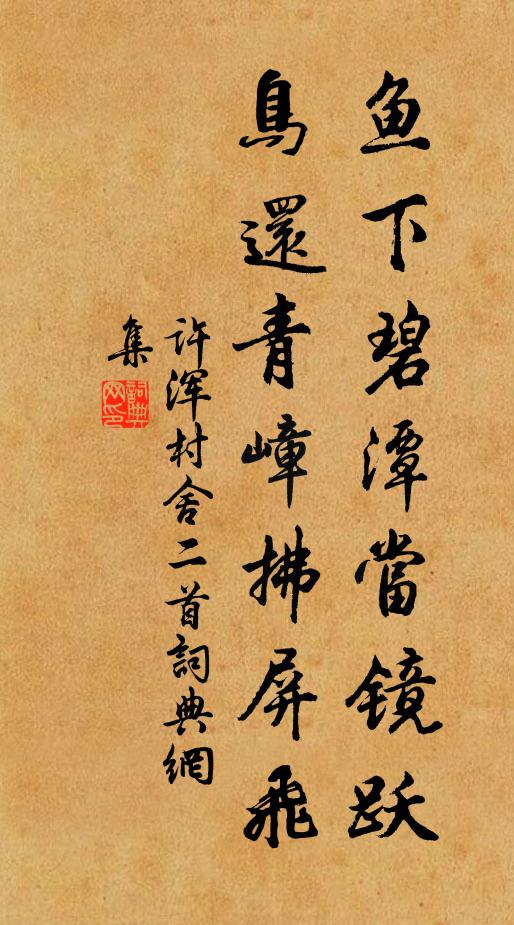 鱼下碧潭當镜跃
鳥還青嶂拂屏飛
许浑村舍二首詞典網
集
詞典网印